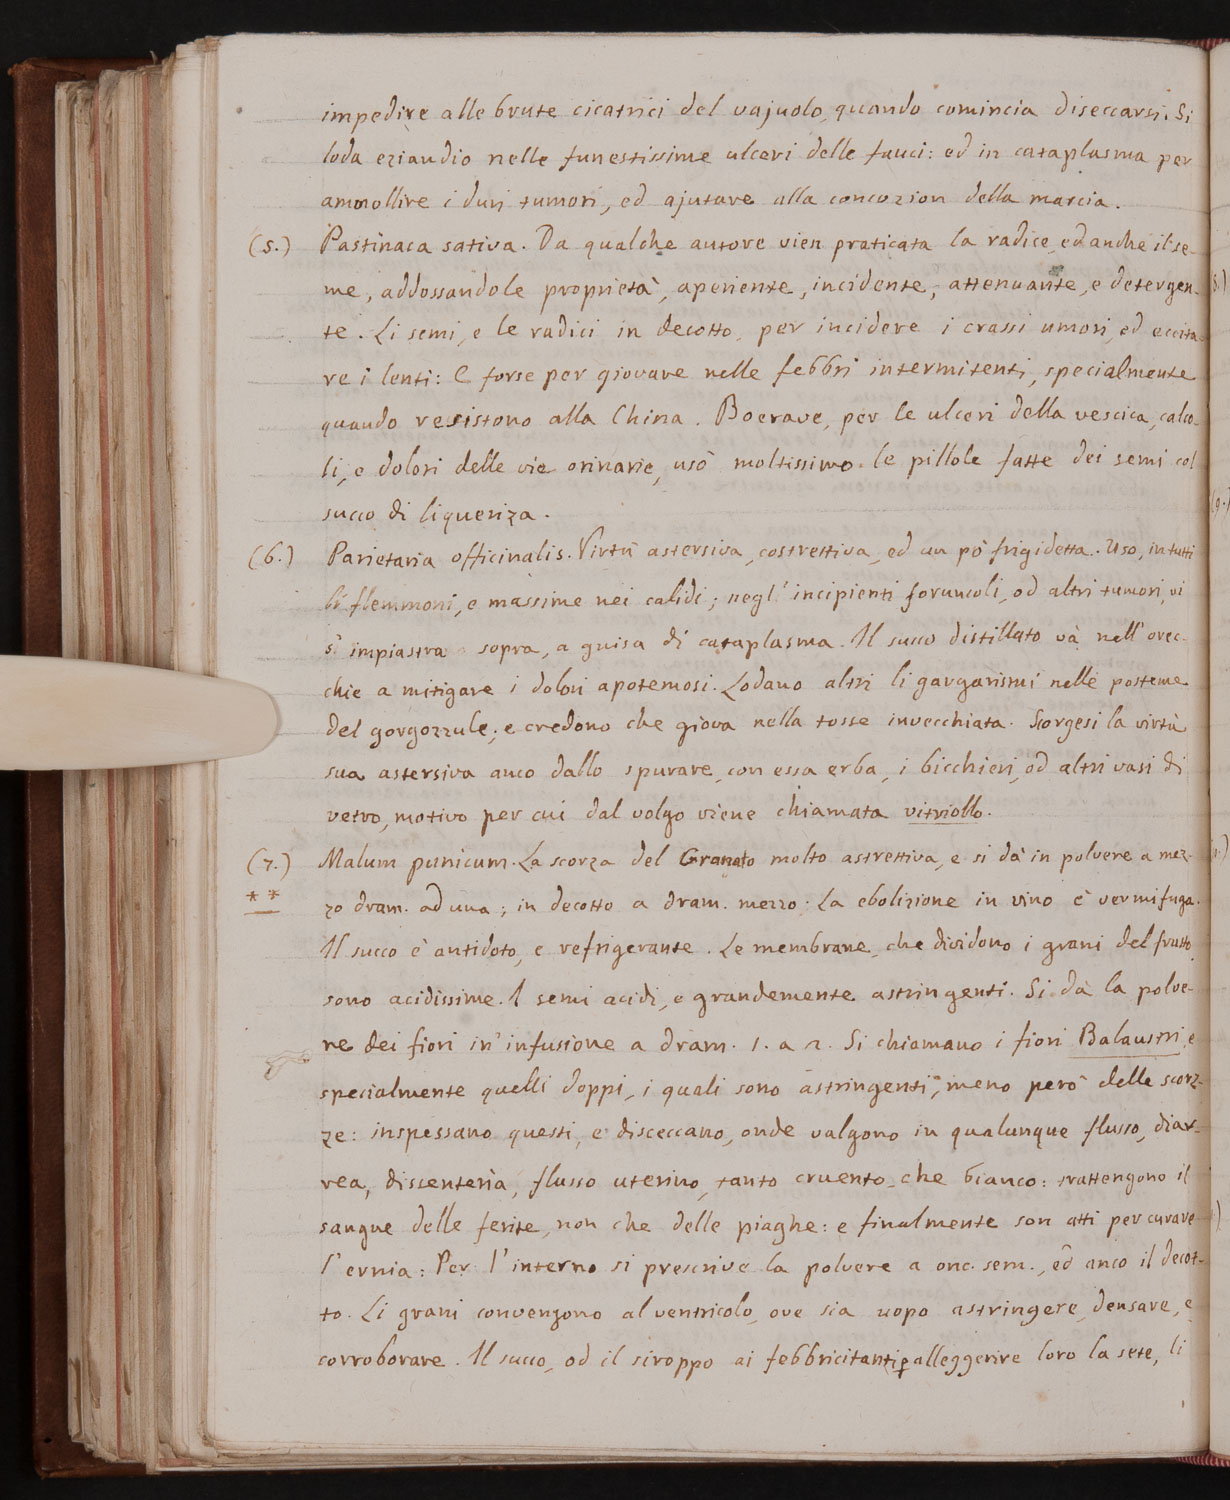 impedire alle brute cicatrici del vajuolo, quando comincia diseccarsi. Si
loda eziandio nelle funestissime ulceri delle fauci: ed in cataplasma per
ammollire i duri tumori, ed ajutare alla concozion della marcia.
(5.) Pastinaca sativa. Da qualche autore vien praticata la radice, ed anche il se-
me, addossandole proprietà, aperiente, incidente, attenuante, e detergen-
te. Li semi, e le radici in decotto, per incidere i crassi umori, ed eccita-
re i lenti: E forse per giovare nelle febbri intermitenti, specialmente
quando resistono alla China. Boerave, per le ulceri della vescica, calco-
li, e dolori delle vie orinarie, usò moltissimo le pillole fatte dei semi col
succo di liqueriza.
(6.) Parietaria officinalis. Virtù astersiva, costrettiva, ed un pò frigidetta. Uso, in tutti
li flemmoni, e massime nei calidi; negl' incipienti foruncoli, od altri tumori, vi
s' impiastra sopra, a guisa di cataplasma. Il succo distillato và nell' orec-
chie a mitigare i dolori apotemosi. Lodano altri li gargarismi nelle posteme
del gorgozzule; e credono che giova nella tosse invecchiata. Scorgesi la virtù
sua astersiva anco dallo spurare, con essa erba, i bicchieri, od altri vasi di
vetro, motivo per cui dal volgo viene chiamata vitriollo.
(7.) Malum punicum. La scorza del Granato molto astrettiva, e si dà in polvere a mez-
** zo dram. ad una; in decotto a dram. mezzo: La ebolizione in vino è vermifuga.
Il succo è antidoto, e refrigerante. Le membrane, che dividono i grani del frutto
sono acidissime. I semi acidi, e grandemente astringenti. Si dà la polve-
re dei fiori in' infusione a dram. 1. a 2. Si chiamano i fiori Balaustri, e
specialmente quelli doppi, i quali sono astringenti, meno però delle scorz-
ze: inspessano questi, e disceccano, onde valgono in qualunque flusso, diar-
rea, dissenteria, flusso uterino, tanto cruento, che bianco: trattengono il
sangue delle ferite, non che delle piaghe: e finalmente son atti per curare
l' ernia: Per l' interno si prescrive la polvere a onc. sem., ed anco il decot-
to. Li grani convengono al ventricolo, ove sia uopo astringere, densare, e
corroborare. Il succo, od il siroppo ai febbricitanti p alleggerire loro la sete, li